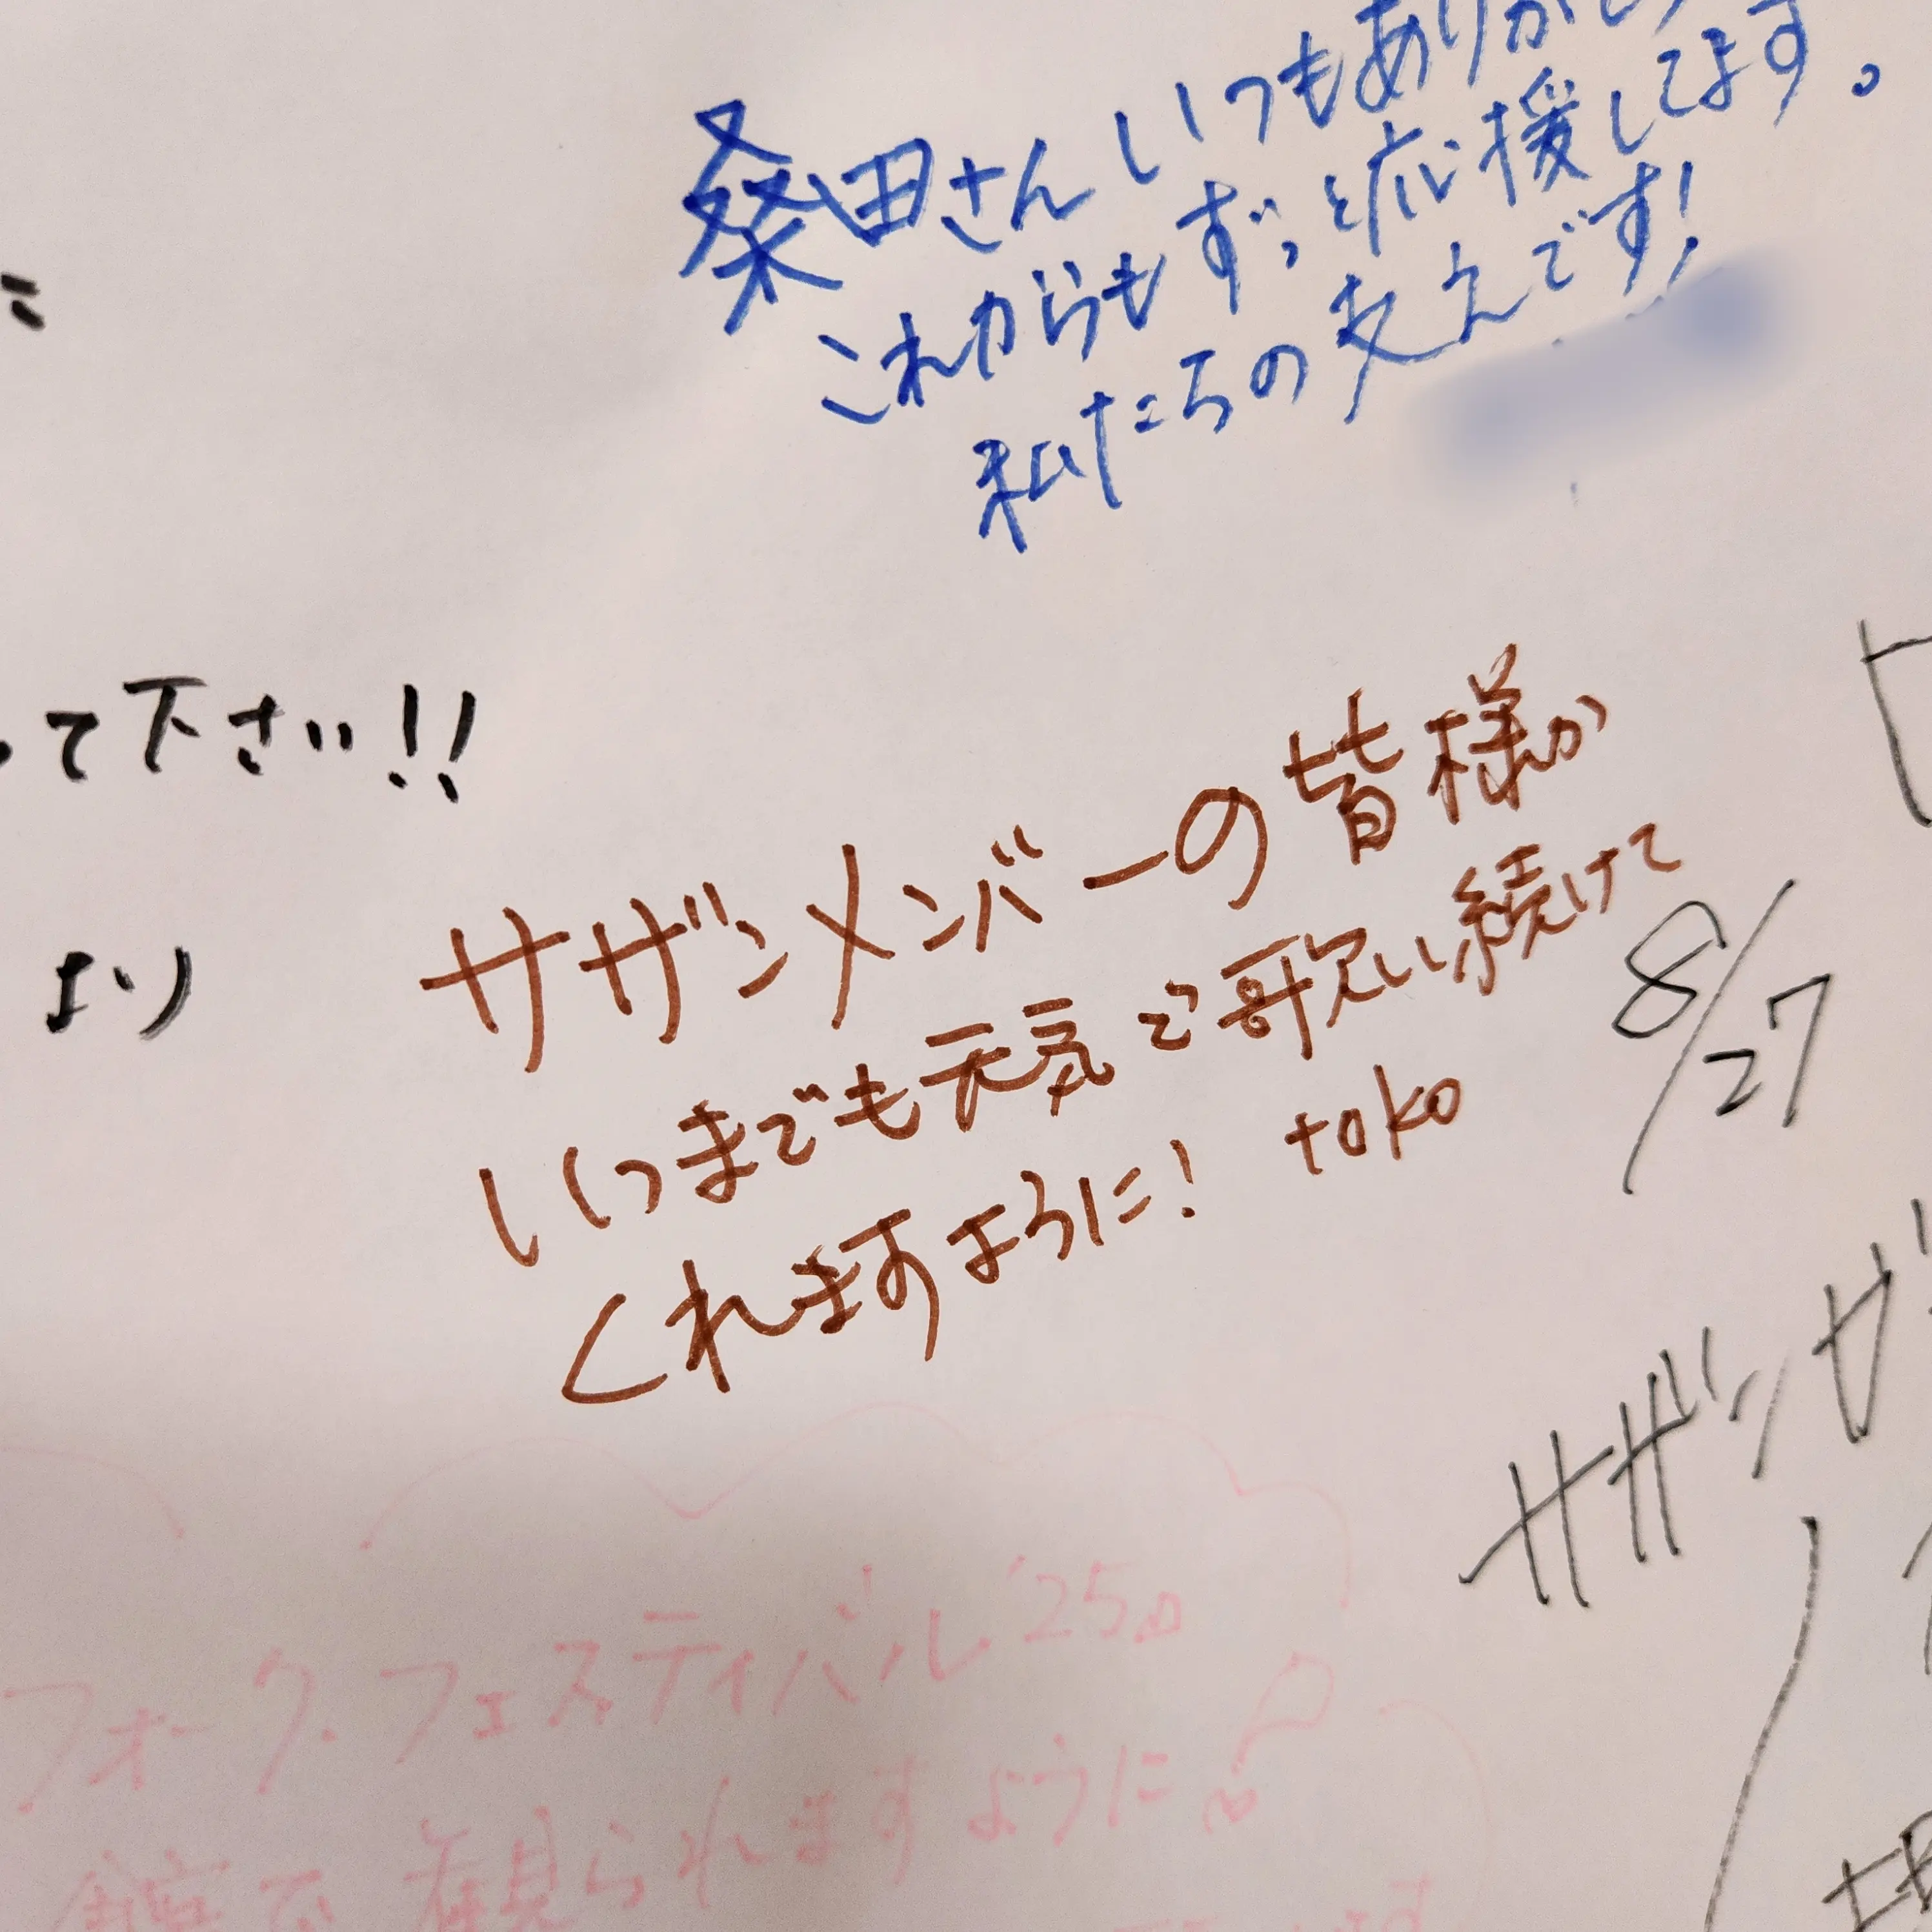 桑田さん いつもありが
これからもずっと応援してます。
私たちの支えです!
って下さい!!
より
サザンメンバーの皆様が
いつまでも元気で歌い続けて
くれますように! toko
8/27
サザン
フォーク・フェスティバル'25の
観られますように